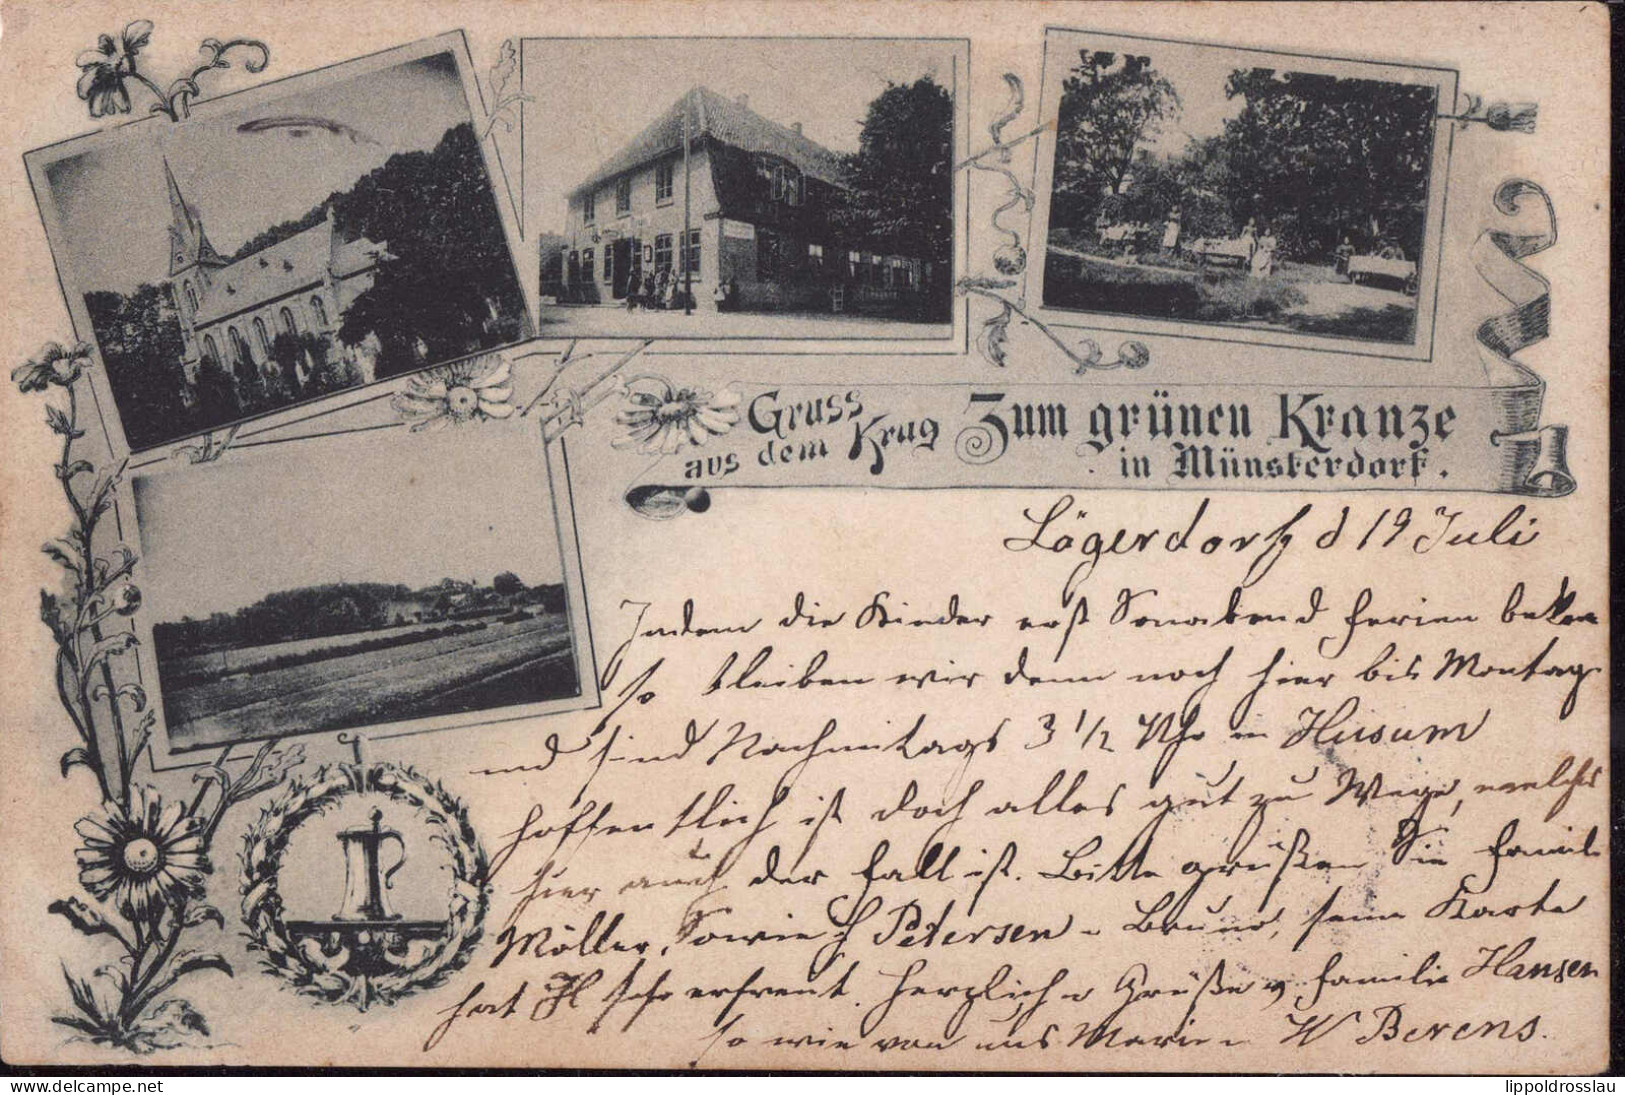 Gruss
aus dem Krug Zum grünen Kranze
in Münsterdorf.
Lägerdorf d 19 Juli
Indem die Kinder erst Sonabend Ferien bekom
so bleiben wir denn noch hier bis Montag
und sind Nachmitags 3 1/2 Uhr in Husum
hoffentlich ist doch alles gut zu Wege, welches
hier auch der Fall ist. Bitte grüßen Sie Famil
Möller, Sowie H Petersen u Bruno, seine Karte
hat H sehr erfreut. Herzliche Grüße v. Familie Hansen
so wie von uns Marie u W Berens.
lippoldrosslau